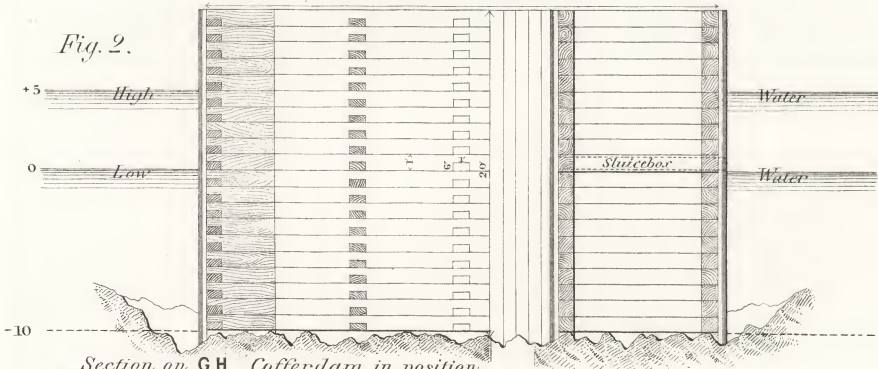 Fig. 2.
+5 High Water
0 Low Water
Sluicebox
1'
6"
1'
20'
-10
Section on GH Cofferdam in position